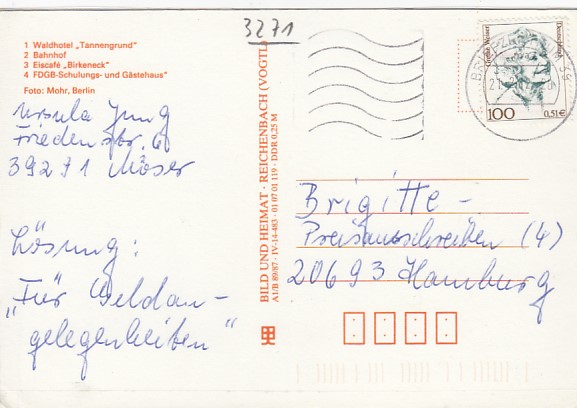 3271
1 Waldhotel „Tannengrund"
2 Bahnhof
3 Eiscafé „Birkeneck"
4 FDGB-Schulungs- und Gästehaus"
Foto: Mohr, Berlin
Ursula Jung
Friedenstr. 6
39291 Möser
Lösung:
„Für Geldan-
gelegenheiten"
BILD UND HEIMAT · REICHENBACH (VOGTL)
A1/B 89/87 · IV-14-483 · 01 07 01 119 · DDR 0,25 M
Grethe Weiser
Deutschland
100
0,51€
Brigitte -
Preisausschreiben (4)
20693 Hamburg